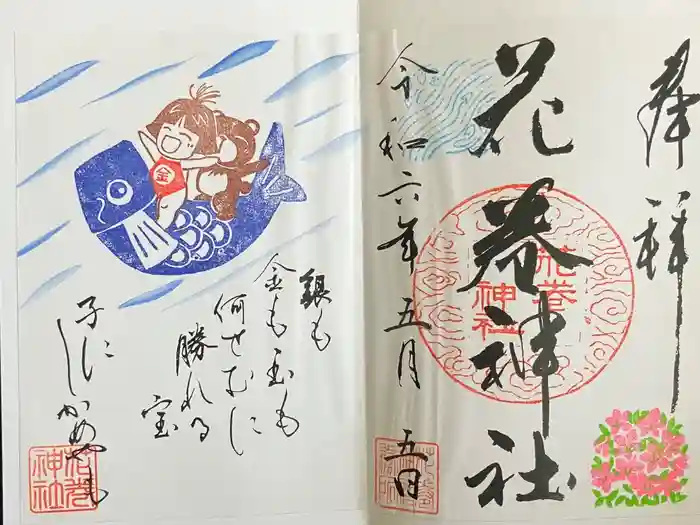 奉拝
花巻神社
花巻
神社
令和六年五月五日
銀も
金も玉も
何せむに
勝れる
宝
子にしかめやも
金
花巻
神社